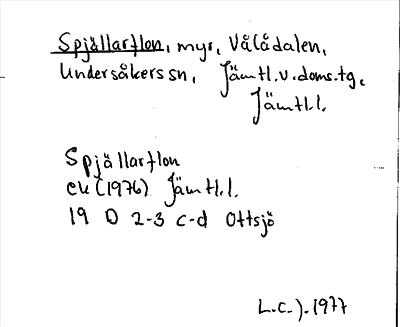 Spjällarflon, myr, Vålådalen,
Undersåkers sn, Jämtl.v.doms.tg,
Jämtl.l.
Spjällarflon
ek (1976) Jämtl.l.
19 D 2-3 c-d Ottsjö
L.C.J. 1977